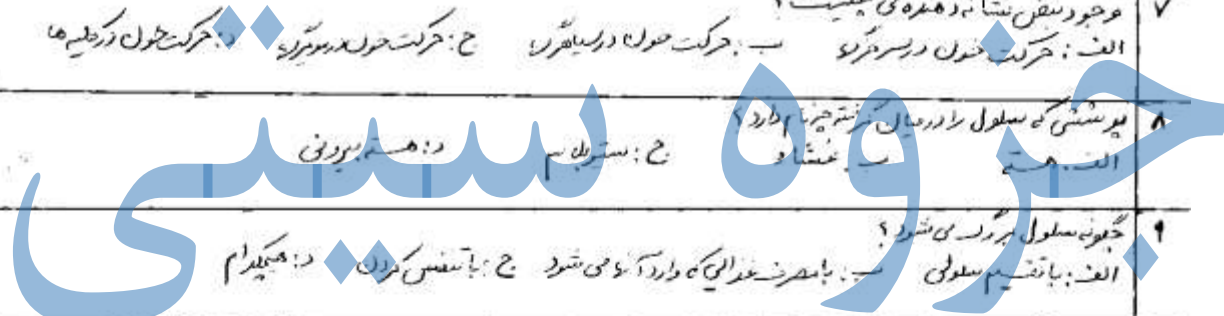 ۷ وجود نبض نشانه دهنده ی چیست؟
الف: حرکت خون در سرخرگ ب: حرکت خون در سیاهرگ ج: حرکت خون در مویرگ د: حرکت خون در کلیه ها
۸ پوششی که سلول را در میان گرفته چه نام دارد؟
الف: هسته ب: غشاء ج: سیتوپلاسم د: هسته بیرونی
۹ چگونه سلول بزرگ می شود؟
الف: با تقسیم سلولی ب: با مصرف غذایی که وارد آنها می شود ج: با تنفس کردن د: هیچکدام
جزوه سیتی